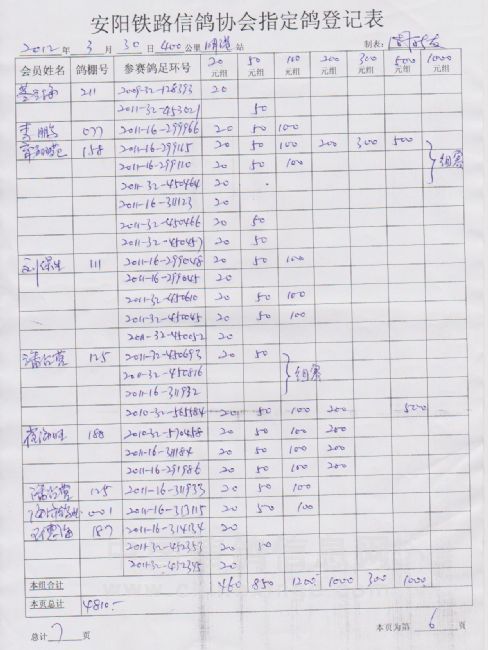 安阳铁路信鸽协会指定鸽登记表
2012 年 3 月 30 日 400 公里 明港 站 制表:
会员姓名 鸽棚号 参赛鸽足环号 20元组 50元组 100元组 200元组 300元组 500元组 1000元组
211 2009-32-128393 20
2011-32-453021 50
李鹏 077 2011-16-299966 20 50 100
158 2011-16-299115 20 50 100 200 300 500
2011-16-299110 20 50 100 组赛
2011-32-450464 20
2011-16-311123 20
2011-32-450466 20 50
2011-32-450457 20 50
刘保生 111 2011-16-299048 20 50 100
2011-16-299045 20
2011-32-450610 20 50 100
2011-32-450045 20 50 100
2011-32-450052 20
125 2011-32-450693 20 50
2011-32-450816 组赛
2011-16-311932
2010-32-565584 20 50 100 200 500
188 2010-32-570458 20 50 100 200
2011-16-31184 20 50 100 200
2011-16-291986 20 50 100 200
125 2011-16-311933 20 50 100
001 2011-16-313115 20 50 100
187 2011-16-314134 20
2011-32-452353 20 50
2011-32-452395 20
本组合计 460 850 1200 1000 300 1000
本页总计 4810.-
总计 7 页 本页为第 6 页